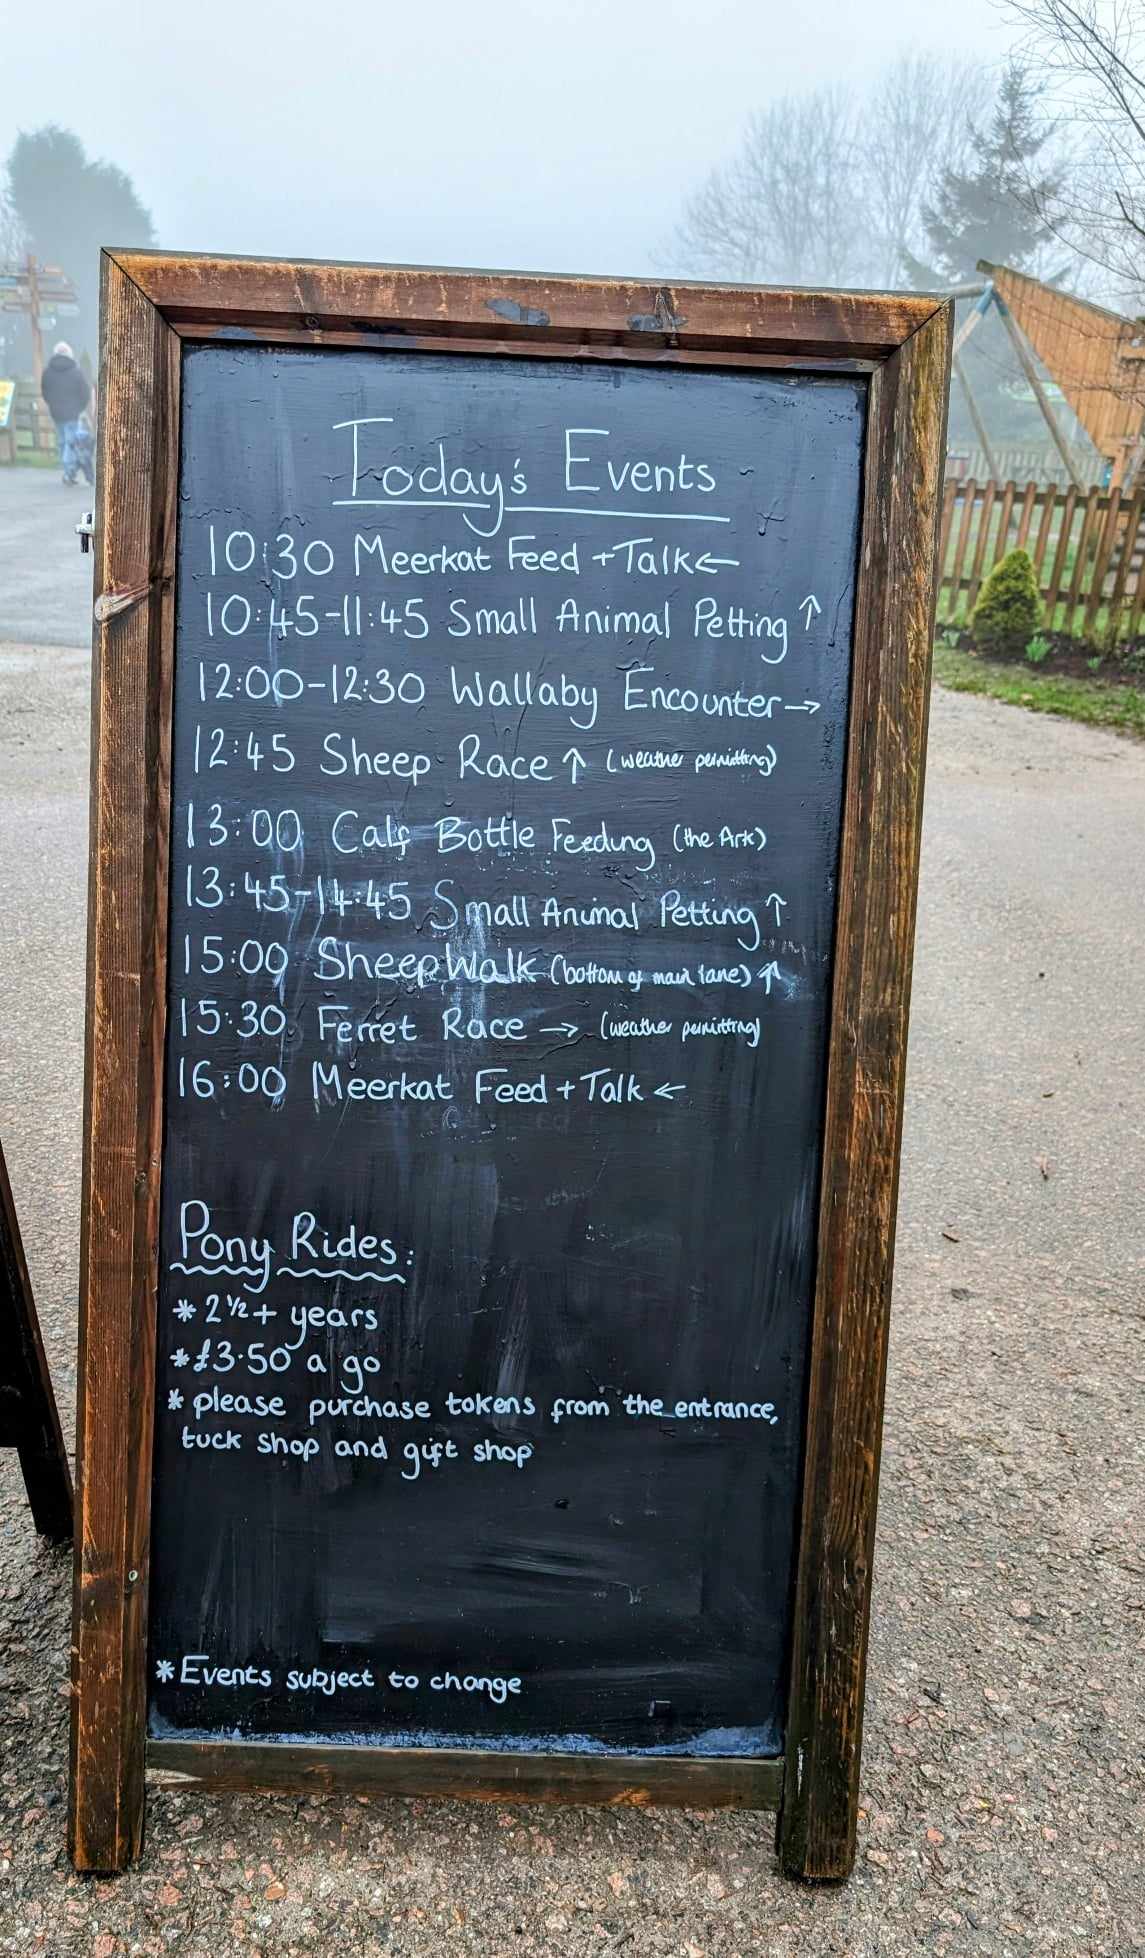 Today's Events
10:30 Meerkat Feed + Talk ←
10:45-11:45 Small Animal Petting ↑
12:00-12:30 Wallaby Encounter →
12:45 Sheep Race ↑ (weather permitting)
13:00 Calf Bottle Feeding (the Ark)
13:45-14:45 Small Animal Petting ↑
15:00 Sheep Walk (bottom of main lane) ↑
15:30 Ferret Race → (weather permitting)
16:00 Meerkat Feed + Talk ←
Pony Rides:
* 2½+ years
* £3.50 a go
* please purchase tokens from the entrance,
tuck shop and gift shop
* Events subject to change